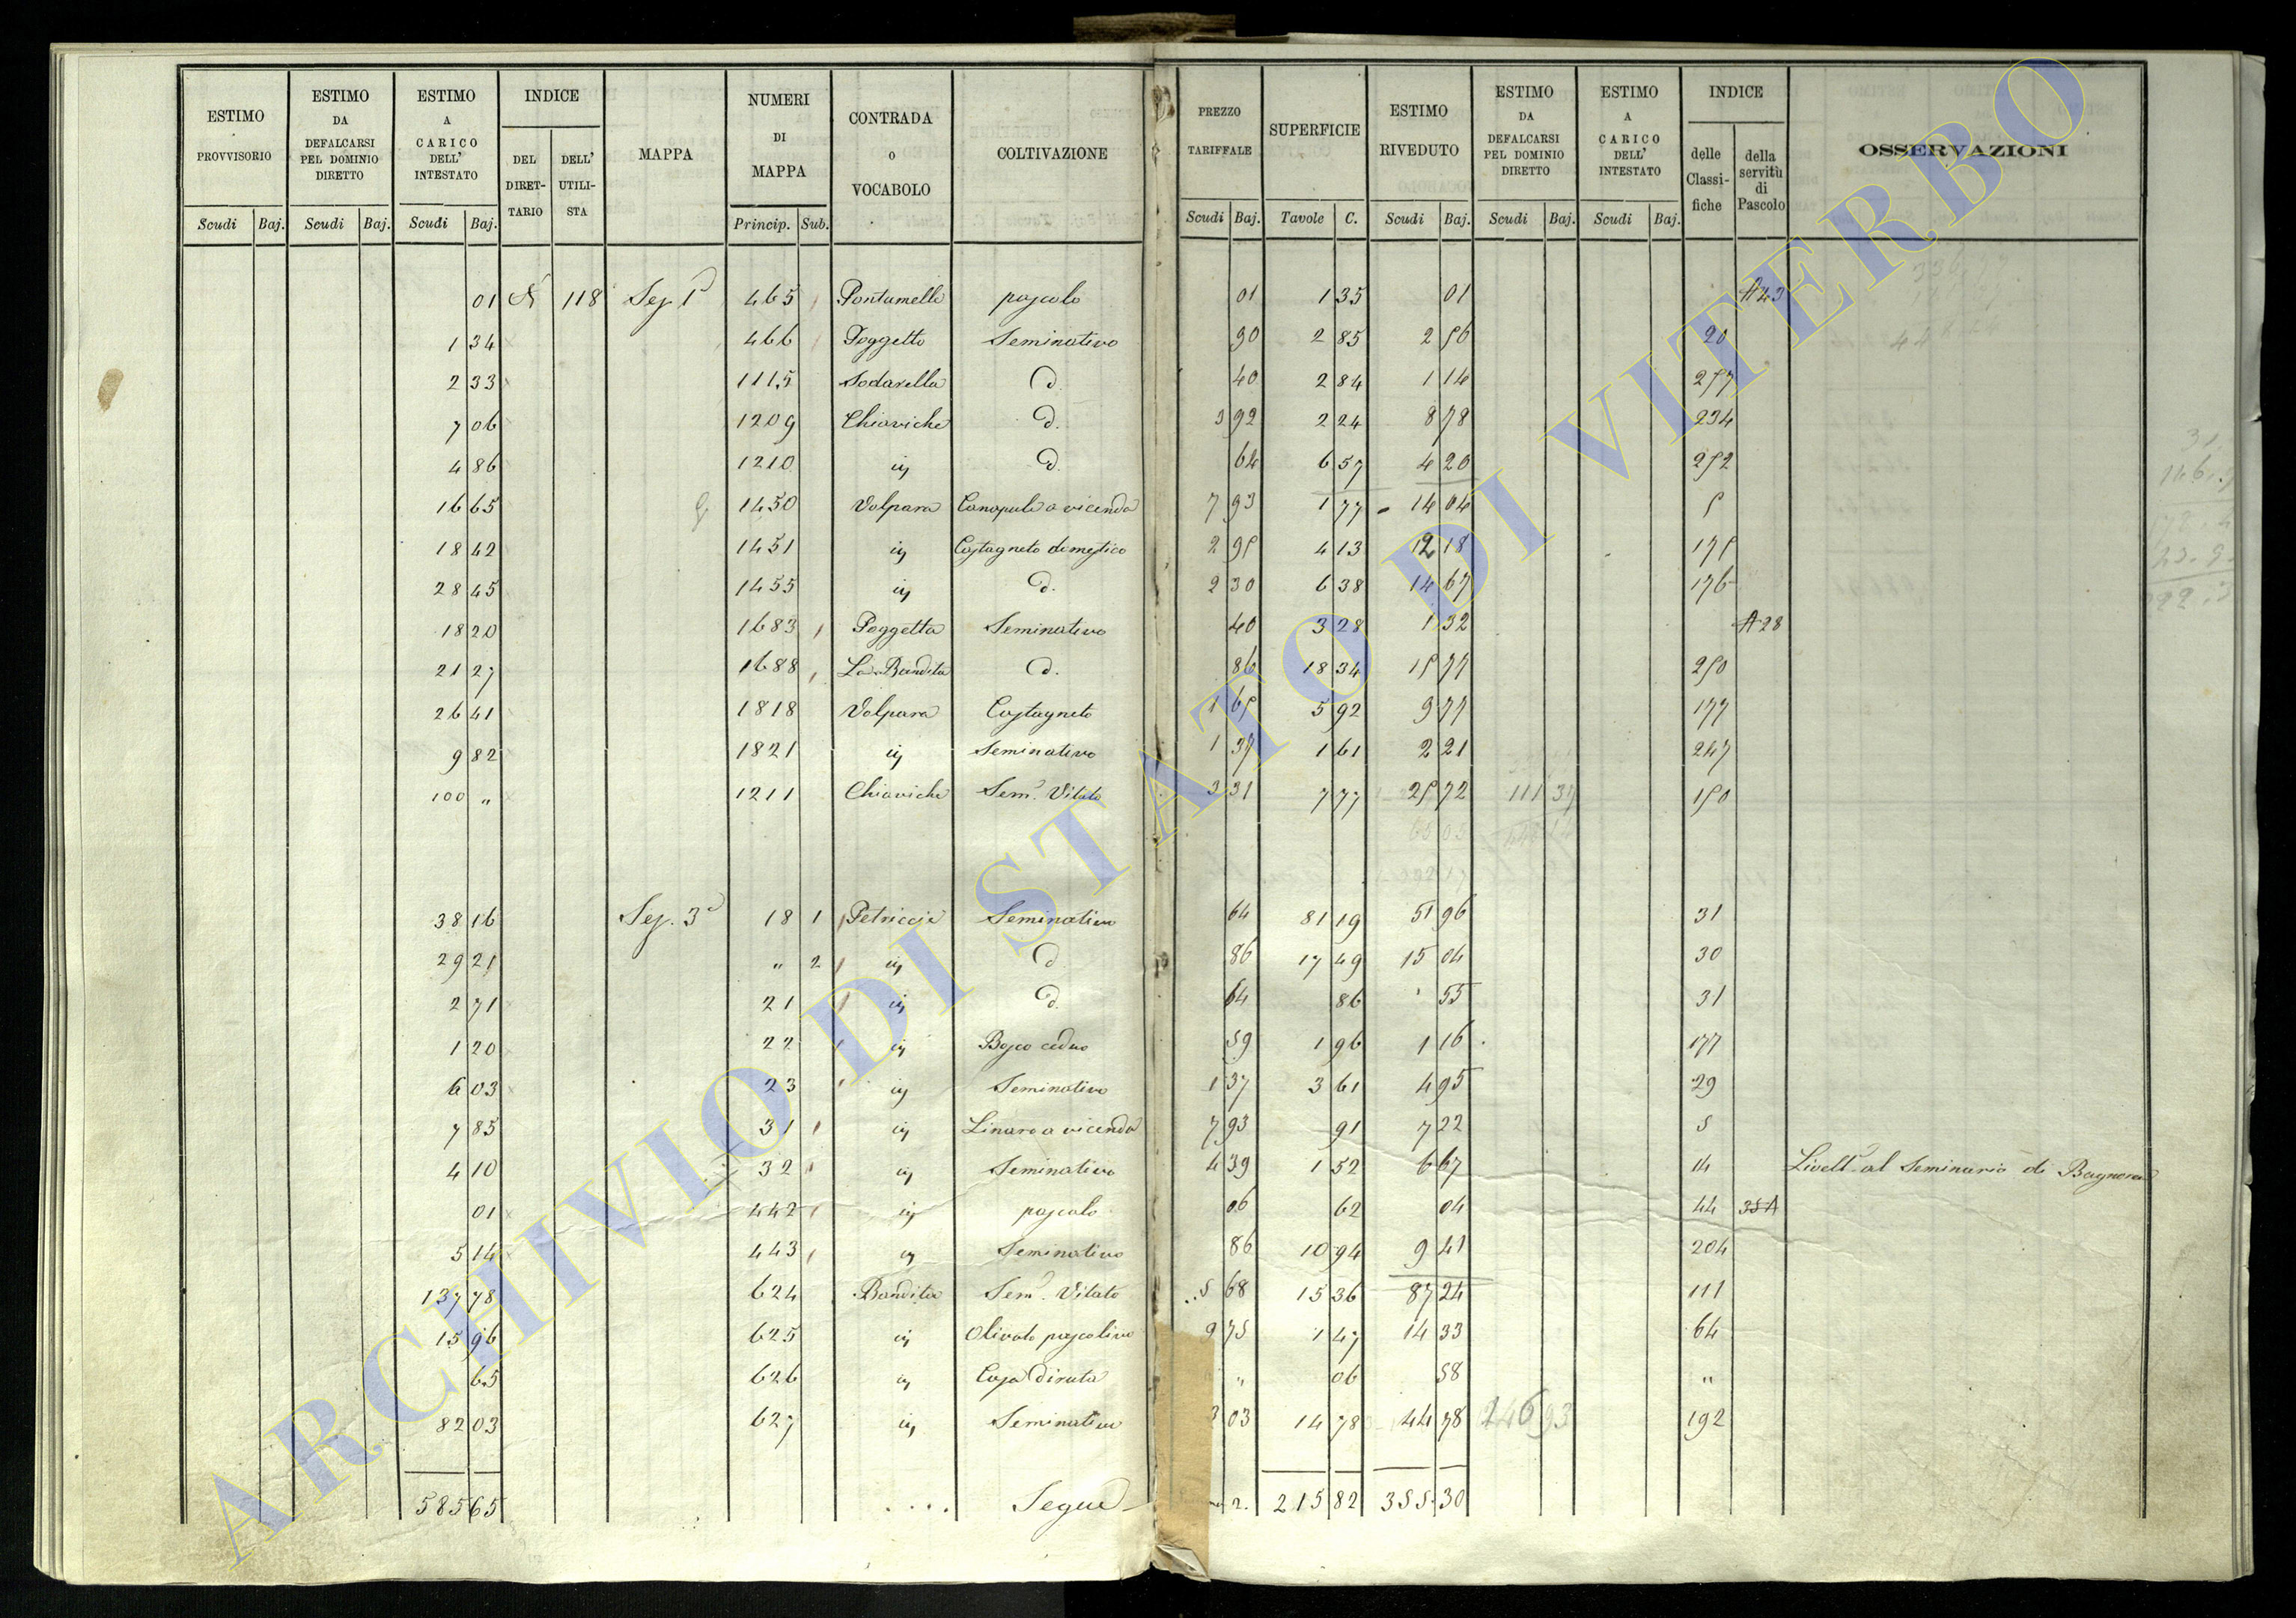 ESTIMO PROVVISORIO
ESTIMO DA DEFALCARSI PEL DOMINIO DIRETTO
ESTIMO A CARICO DELL' INTESTATO
INDICE
DEL DIRETTARIO
DELL' UTILISTA
MAPPA
NUMERI DI MAPPA
CONTRADA O VOCABOLO
COLTIVAZIONE
PREZZO TARIFFALE
SUPERFICIE
ESTIMO RIVEDUTO
ESTIMO DA DEFALCARSI PEL DOMINIO DIRETTO
ESTIMO A CARICO DELL' INTESTATO
INDICE
delle Classifiche
della servitù di Pascolo
OSSERVAZIONI
Scudi Baj. Scudi Baj. Scudi Baj. Princip. Sub. Scudi Baj. Tavole C. Scudi Baj. Scudi Baj. Scudi Baj.
01 118 Sez. 1ª 465 Pontamello pascolo 01 1 35 01 A 43
1 34 466 Poggetto Seminativo 90 2 85 2 56 20
2 33 1115 Sodarella d. 40 2 84 1 14 257
7 06 1209 Chiaviche d. 3 92 2 24 8 78 234
4 86 1210 id. d. 64 6 57 4 20 252
16 65 1450 Volpara Canapule a vicenda 7 93 1 77 14 04 5
18 42 1451 id. Castagneto domestico 2 95 4 13 12 18 175
28 45 1455 id. d. 2 30 6 38 14 67 176
18 20 1683 Poggetta Seminativo 40 3 28 1 32 A 28
21 27 1688 La Bandita d. 86 18 34 15 77 250
26 41 1818 Volpara Castagneto 1 65 5 92 9 77 177
9 82 1821 id. Seminativo 1 37 1 61 2 21 247
100 " 1211 Chiaviche Sem.º Vitato 3 31 7 77 25 72 111 37 150
38 16 Sez. 3ª 18 1 Petriccie Seminativo 64 81 19 51 96 31
29 21 " 2 id. d. 86 17 49 15 04 30
2 71 21 id. d. 64 86 55 31
1 20 22 id. Bosco ceduo 59 1 96 1 16 177
6 03 23 id. Seminativo 1 37 3 61 4 95 29
7 85 31 id. Linaro a vicenda 7 93 91 7 22 5
4 10 32 id. Seminativo 4 39 1 52 6 67 14 Livell.º al Seminario di Bagnorea
01 442 id. pascolo 06 62 04 44 35 A
5 14 443 id. Seminativo 86 10 94 9 41 204
137 78 624 Bandita Sem.º Vitato 5 68 15 36 87 24 111
15 96 625 id. Olivato pascolivo 9 75 1 47 14 33 64
65 626 id. Casa diruta " 06 58 "
82 03 627 id. Seminativo 3 03 14 78 44 78 246 93 192
585 65 Segue 215 82 355 30
ARCHIVIO DI STATO DI VITERBO